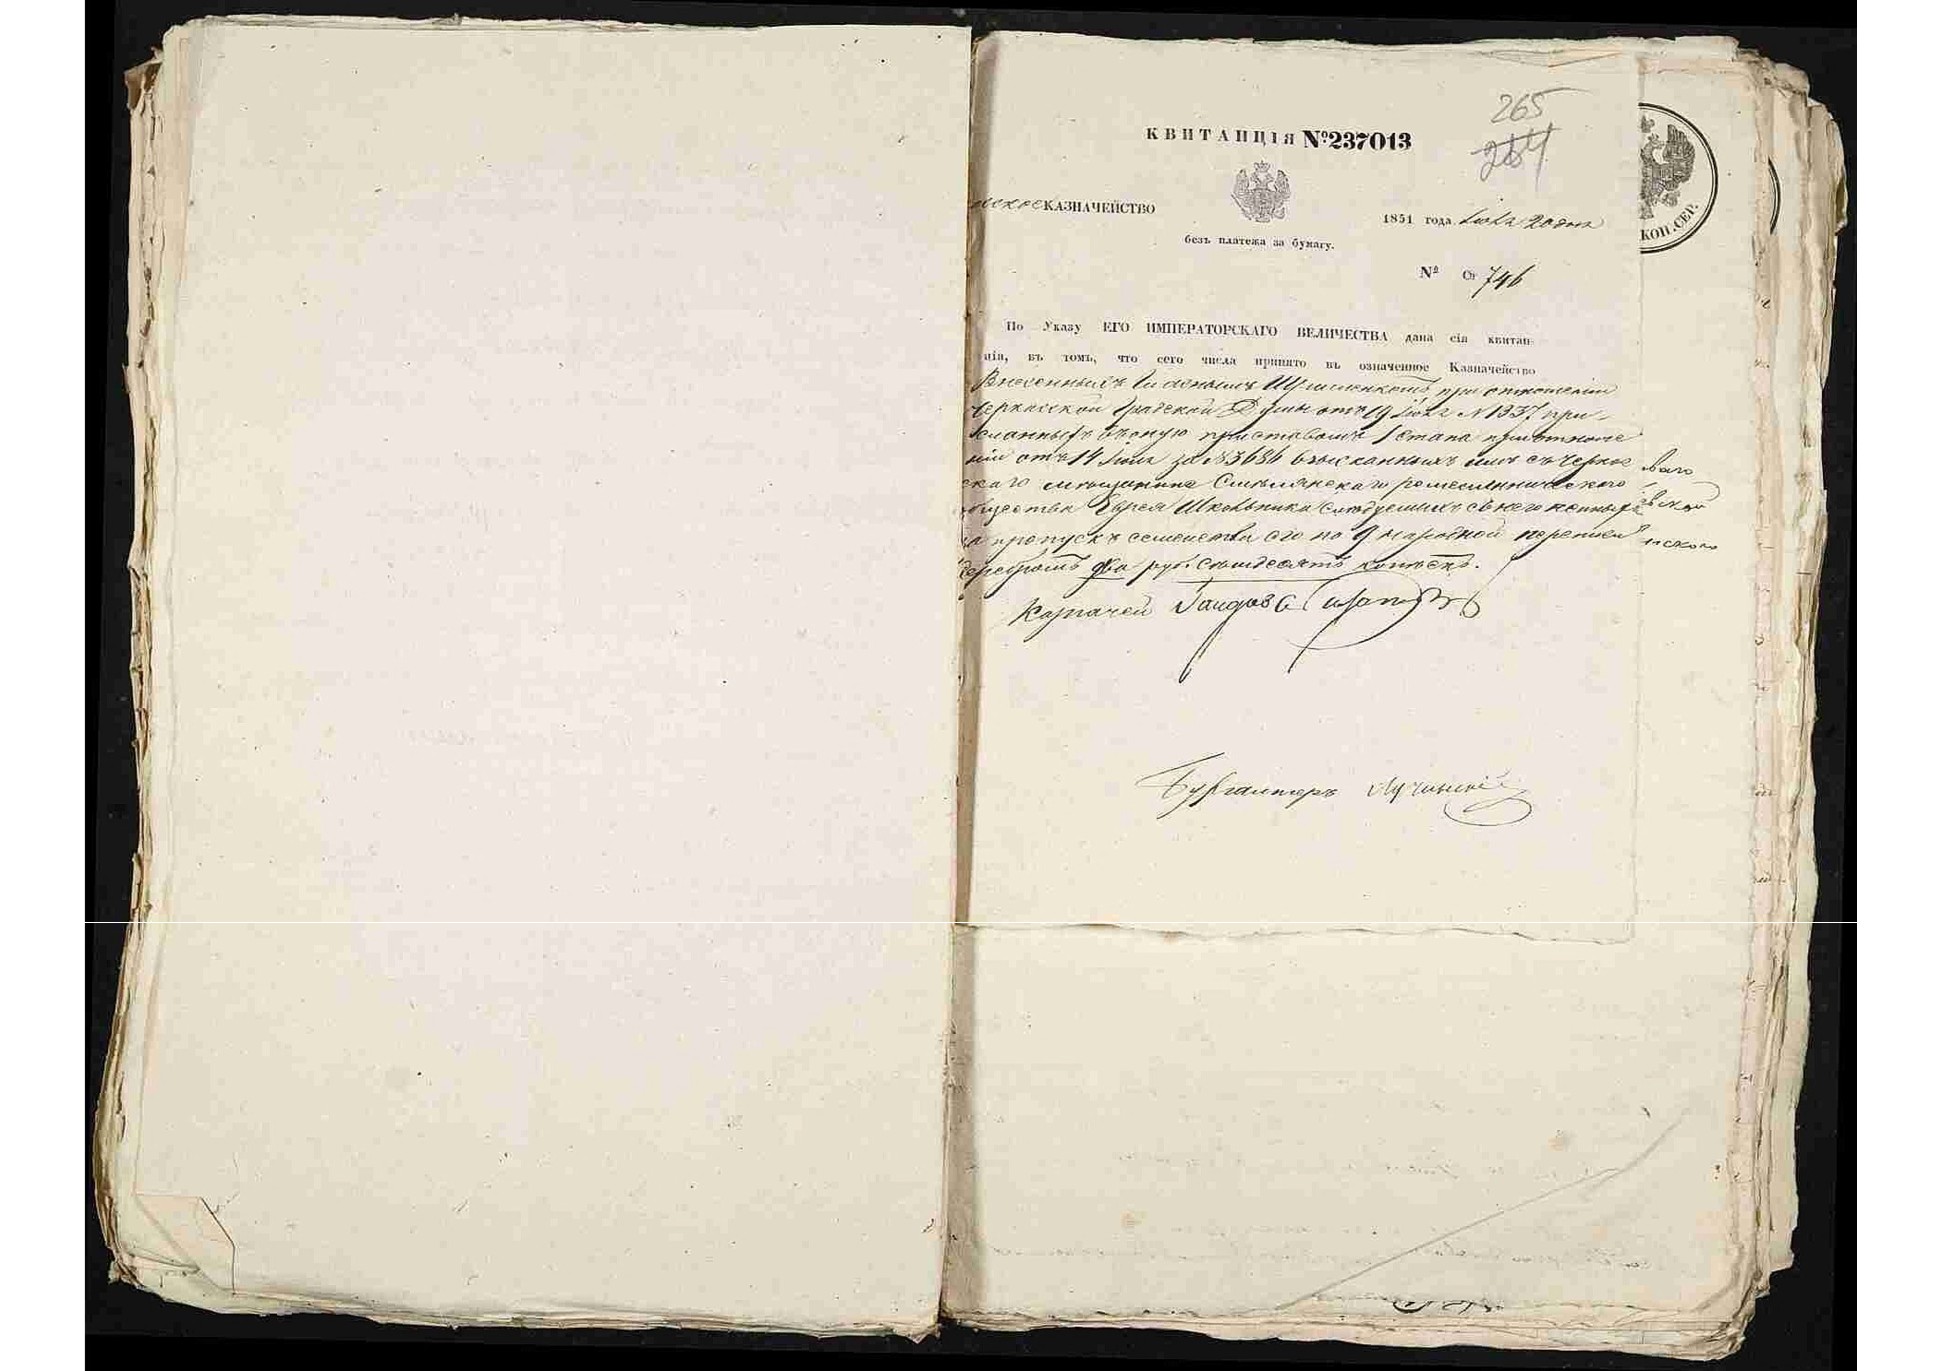 265
264
КВИТАНЦІЯ №237013
КАЗНАЧЕЙСТВО
1851 года Іюля 20 дня
безъ платежа за бумагу.
№ Ст 746
КОП. СЕР.
По Указу ЕГО ИМПЕРАТОРСКАГО ВЕЛИЧЕСТВА дана сія квитан-
ція, въ томъ, что сего числа принято въ означенное Казначейство
Внесенныхъ Гласнымъ при отношеніи
Черкасской Градской Думы отъ 19 Іюля №1337 при-
сланныхъ въ оную приставомъ 1 стана при отноше
ніи отъ 14 Іюля за №3686 взысканныхъ имъ съ Черкас
скаго мѣщанина Смѣлянскаго ремесленническаго
общества Еврея Школьника слѣдуемыхъ съ него
за пропускъ семейства его по 9 народной переписи
серебромъ два руб. семьдесятъ копѣекъ.
Казначей
Бухгалтеръ Лучинскій